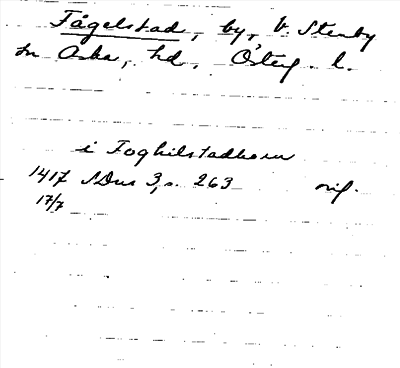 Fågelstad, by, V. Stenby
sn Aska, hd, Österg. l.
i Foghilstadhom
1417 SDns 3, s. 263 orig.
17/7